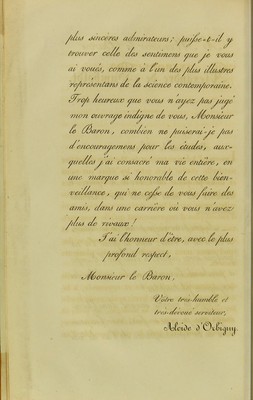 plus sincères admirateurs; puisse-t-il y
trouver celle des sentimens que je vous
ai voués, comme à l'un des plus illustres
représentans de la science contemporaine.
Trop heureux que vous n'ayez pas jugé
mon ouvrage indigne de vous, Monsieur
le Baron, combien ne puiserai-je pas
d'encouragemens pour les études, aux-
quelles j'ai consacré ma vie entière, en
une marque si honorable de cette bien-
veillance, qui ne cesse de vous faire des
amis, dans une carrière où vous n'avez
plus de rivaux!
J'ai l'honneur d'être, avec le plus
profond respect,
Monsieur le Baron,
Votre très-humble et
très-dévoué serviteur,
Alcide d'Orbigny.